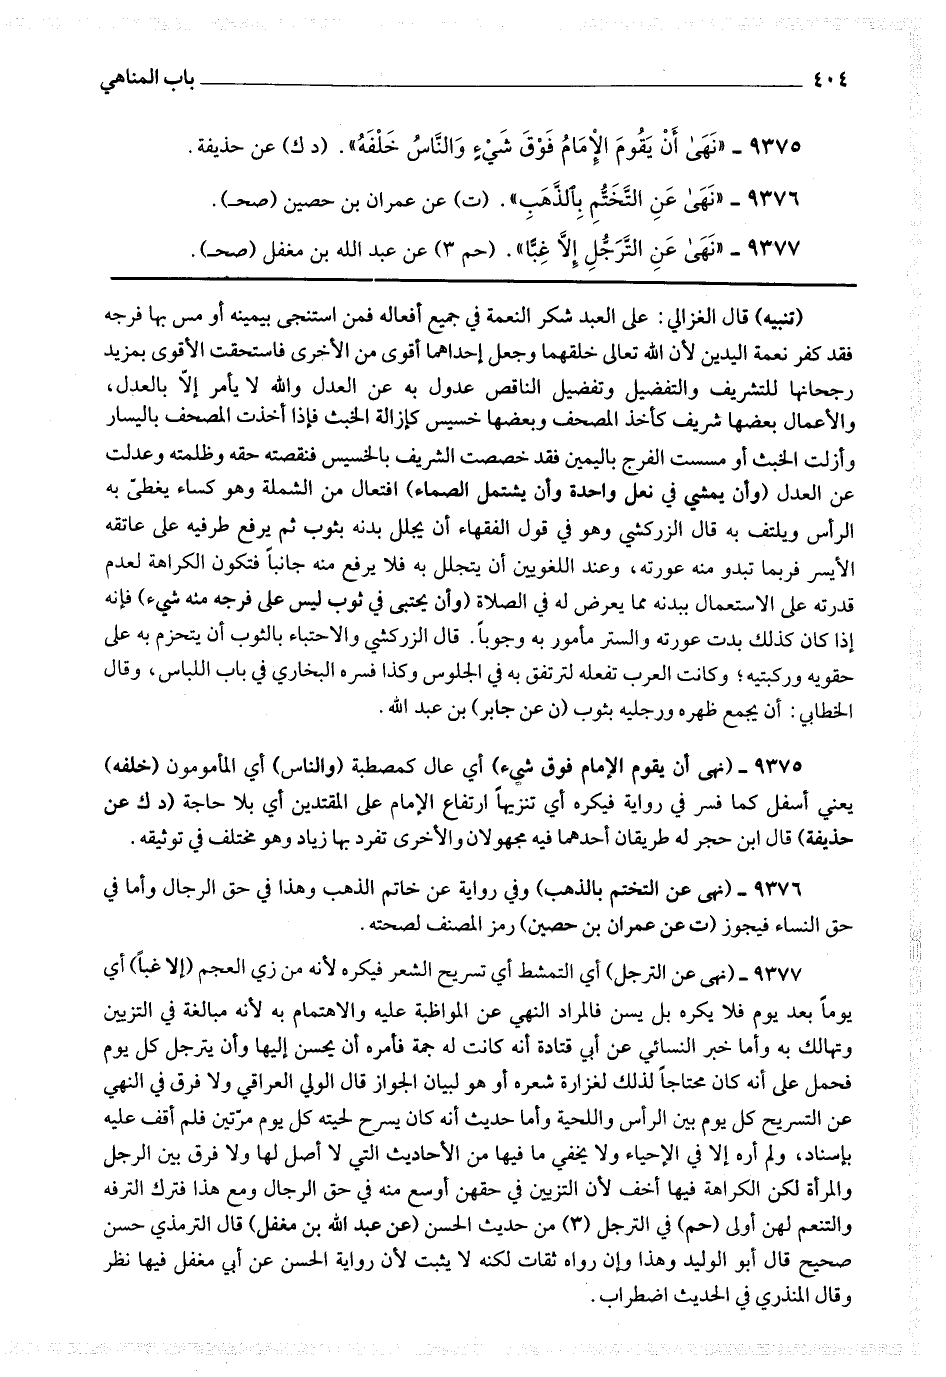 ٤٠٤ باب المناهي
٩٣٧٥ ـ «نَهَىٰ أَنْ يَقُومَ الْإِمَامُ فَوْقَ شَيْءٍ وَالنَّاسُ خَلْفَهُ». (د ك) عن حذيفة.
٩٣٧٦ ـ «نَهَىٰ عَنِ التَّخَتُّمِ بِالذَّهَبِ». (ت) عن عمران بن حصين (صحـ).
٩٣٧٧ ـ «نَهَىٰ عَنِ التَّرَجُّلِ إِلَّا غِبًّا». (حم ٣) عن عبد الله بن مغفل (صحـ).
(تنبيه) قال الغزالي: على العبد شكر النعمة في جميع أفعاله فمن استنجى بيمينه أو مس بها فرجه
فقد كفر نعمة اليدين لأن الله تعالى خلقهما وجعل إحداهما أقوى من الأخرى فاستحقت الأقوى بمزيد
رجحانها للتشريف والتفضيل وتفضيل الناقص عدول به عن العدل والله لا يأمر إلاّ بالعدل،
والأعمال بعضها شريف كأخذ المصحف وبعضها خسيس كإزالة الخبث فإذا أخذت المصحف باليسار
وأزلت الخبث أو مسست الفرج باليمين فقد خصصت الشريف بالخسيس فنقصته حقه وظلمته وعدلت
عن العدل (وأن يمشي في نعل واحدة وأن يشتمل الصماء) افتعال من الشملة وهو كساء يغطىّ به
الرأس ويلتف به قال الزركشي وهو في قول الفقهاء أن يجلل بدنه بثوب ثم يرفع طرفيه على عاتقه
الأيسر فربما تبدو منه عورته، وعند اللغويين أن يتجلل به فلا يرفع منه جانباً فتكون الكراهة لعدم
قدرته على الاستعمال ببدنه مما يعرض له في الصلاة (وأن يحتبى في ثوب ليس على فرجه منه شيء) فإنه
إذا كان كذلك بدت عورته والستر مأمور به وجوباً. قال الزركشي والاحتباء بالثوب أن يتحزم به على
حقويه وركبتيه؛ وكانت العرب تفعله لترتفق به في الجلوس وكذا فسره البخاري في باب اللباس، وقال
الخطابي: أن يجمع ظهره ورجليه بثوب (ن عن جابر) بن عبد الله.
٩٣٧٥ ـ (نهى أن يقوم الإمام فوق شيء) أي عال كمصطبة (والناس) أي المأمومون (خلفه)
يعني أسفل كما فسر في رواية فيكره أي تنزيهاً ارتفاع الإمام على المقتدين أي بلا حاجة (د ك عن
حذيفة) قال ابن حجر له طريقان أحدهما فيه مجهولان والأخرى تفرد بها زياد وهو مختلف في توثيقه.
٩٣٧٦ ـ (نهى عن التختم بالذهب) وفي رواية عن خاتم الذهب وهذا في حق الرجال وأما في
حق النساء فيجوز (ت عن عمران بن حصين) رمز المصنف لصحته.
٩٣٧٧ ـ (نهى عن الترجل) أي التمشط أي تسريح الشعر فيكره لأنه من زي العجم (إلا غباً) أي
يوماً بعد يوم فلا يكره بل يسن فالمراد النهي عن المواظبة عليه والاهتمام به لأنه مبالغة في التزيين
وتهالك به وأما خبر النسائي عن أبي قتادة أنه كانت له جمة فأمره أن يحسن إليها وأن يترجل كل يوم
فحمل على أنه كان محتاجاً لذلك لغزارة شعره أو هو لبيان الجواز قال الولي العراقي ولا فرق في النهي
عن التسريح كل يوم بين الرأس واللحية وأما حديث أنه كان يسرح لحيته كل يوم مرّتين فلم أقف عليه
بإسناد، ولم أره إلا في الإحياء ولا يخفي ما فيها من الأحاديث التي لا أصل لها ولا فرق بين الرجل
والمرأة لكن الكراهة فيها أخف لأن التزيين في حقهن أوسع منه في حق الرجال ومع هذا فترك الترفه
والتنعم لهن أولى (حم) في الترجل (٣) من حديث الحسن (عن عبد الله بن مغفل) قال الترمذي حسن
صحيح قال أبو الوليد وهذا وإن رواه ثقات لكنه لا يثبت لأن رواية الحسن عن أبي مغفل فيها نظر
وقال المنذري في الحديث اضطراب.